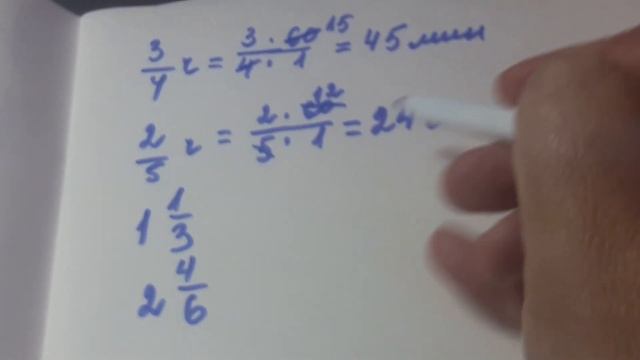 3/4 ч = 3 · 60 15 / 4 · 1 = 45 мин
2/5 ч = 2 · 60 12 / 5 · 1 = 24
1 1/3
2 4/6